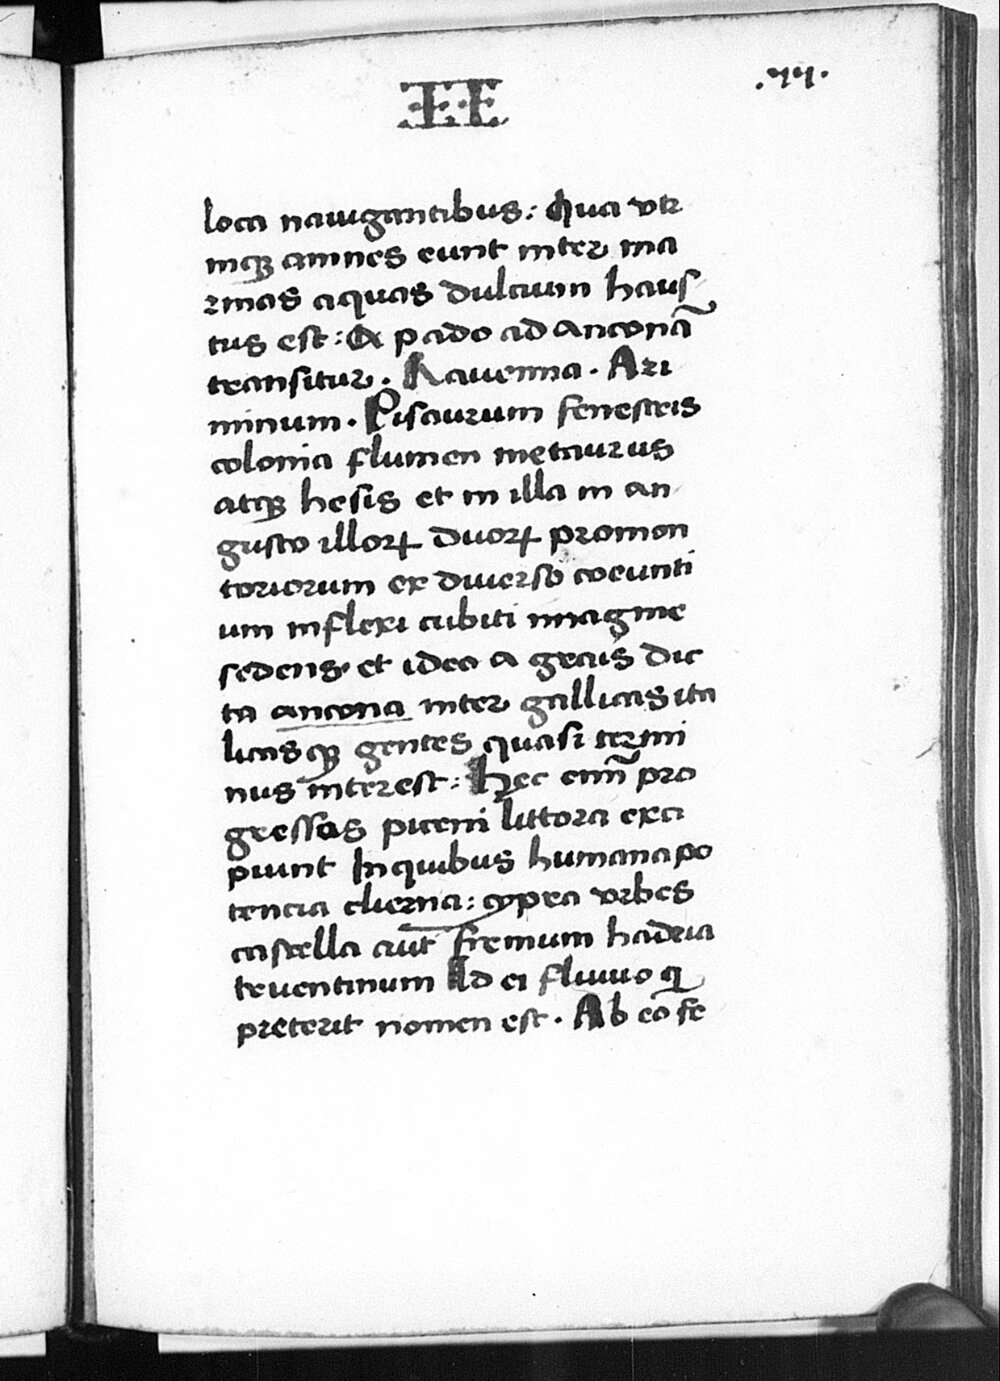 II
.77.
loca nauigantibus: Qua utr
inqꝫ amnes eunt inter ma
rinas aquas dulcium haus
tus est: A pado ad anconā
transitur. Rauenna. Ari
minum. Pisaurum fenestris
colonia flumen metaurus
atqꝫ hesis et in illa in an
gusto illoꝝ duoꝝ promon
toriorum ex diuerso coeunti
um inflexi cubiti imagine
sedens. et ideo a grecis dic
ta ancona inter gallicas ita
licasqꝫ gentes quasi termi
nus interest: Hec enim̄ pro
gressos piceni littora exci
piunt In quibus humana po
tencia clierna: cypra urbes
castella aut̄ fremum hadria
truentinum Id ei fluuio q̄
preterit nomen est. Ab eo se